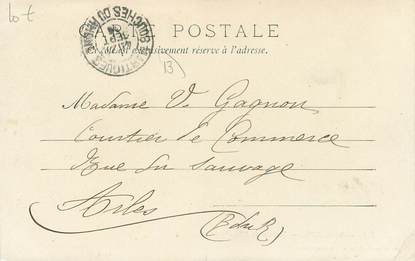 lot
CARTE POSTALE
Ce côté est exclusivement réservé à l'adresse.
MARTIGUES
SEPT
BOUCHES DU RHONE
13
Madame V. Gagnon
Courtier de Commerce
Rue du Sauvage
Arles
(B du R)